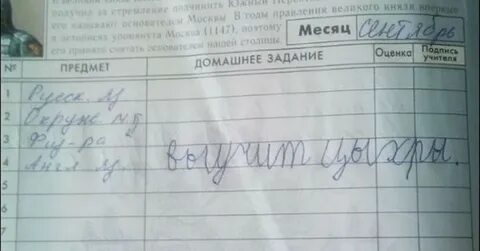 получил за стремление
его называют основателем Москвы. В годы правления великого князя впервые
в летописях упомянута Москва (1147), поэтому
его принято считать основателем нашей столицы.
Месяц сентябрь
№ ПРЕДМЕТ ДОМАШНЕЕ ЗАДАНИЕ Оценка Подпись учителя
1 Русск. яз
2 Окруж. м
3 Физ-ра
4 Англ яз. выучит цыхры.
5
6
7